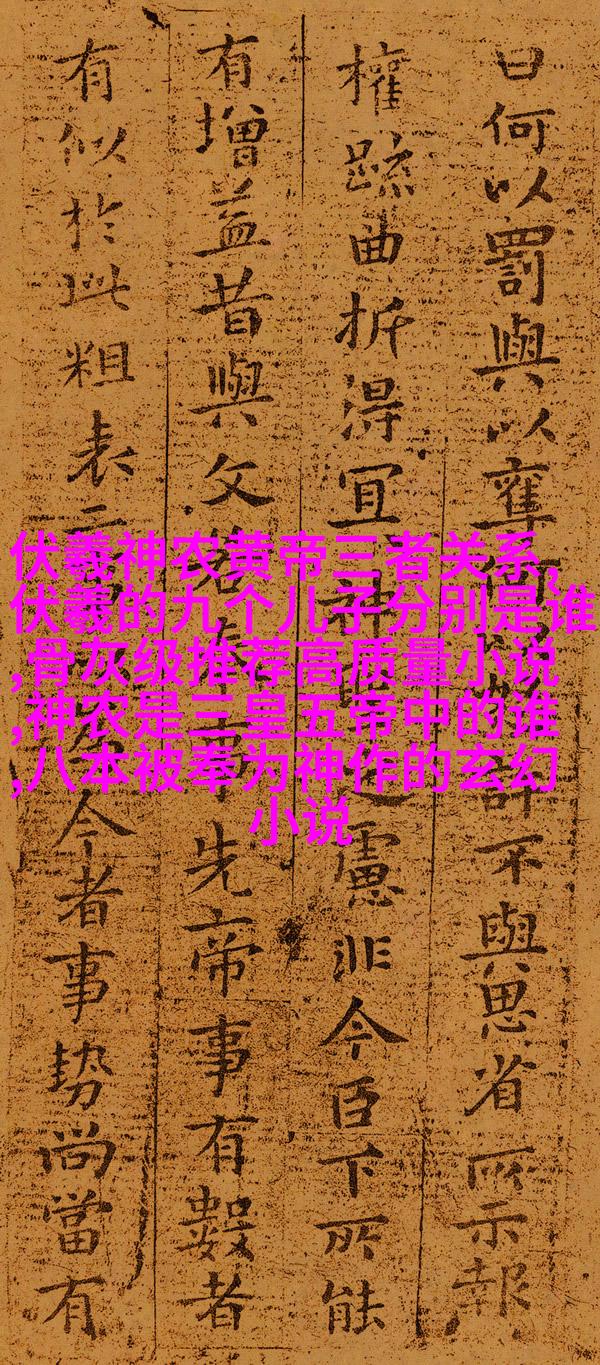 伏羲神农黄帝三者关系,
伏羲的九个儿子分别是谁
,骨灰级推荐高质量小说
,神农是三皇五帝中的谁
,八本被奉为神作的玄幻
小说
曰何以罰與以奪許不與思省所示報
權疏曲折得宜神之慮非今臣下所能
有增益昔與文若奉事先帝事有數者
有似於此粗表二今者事勢尚當有